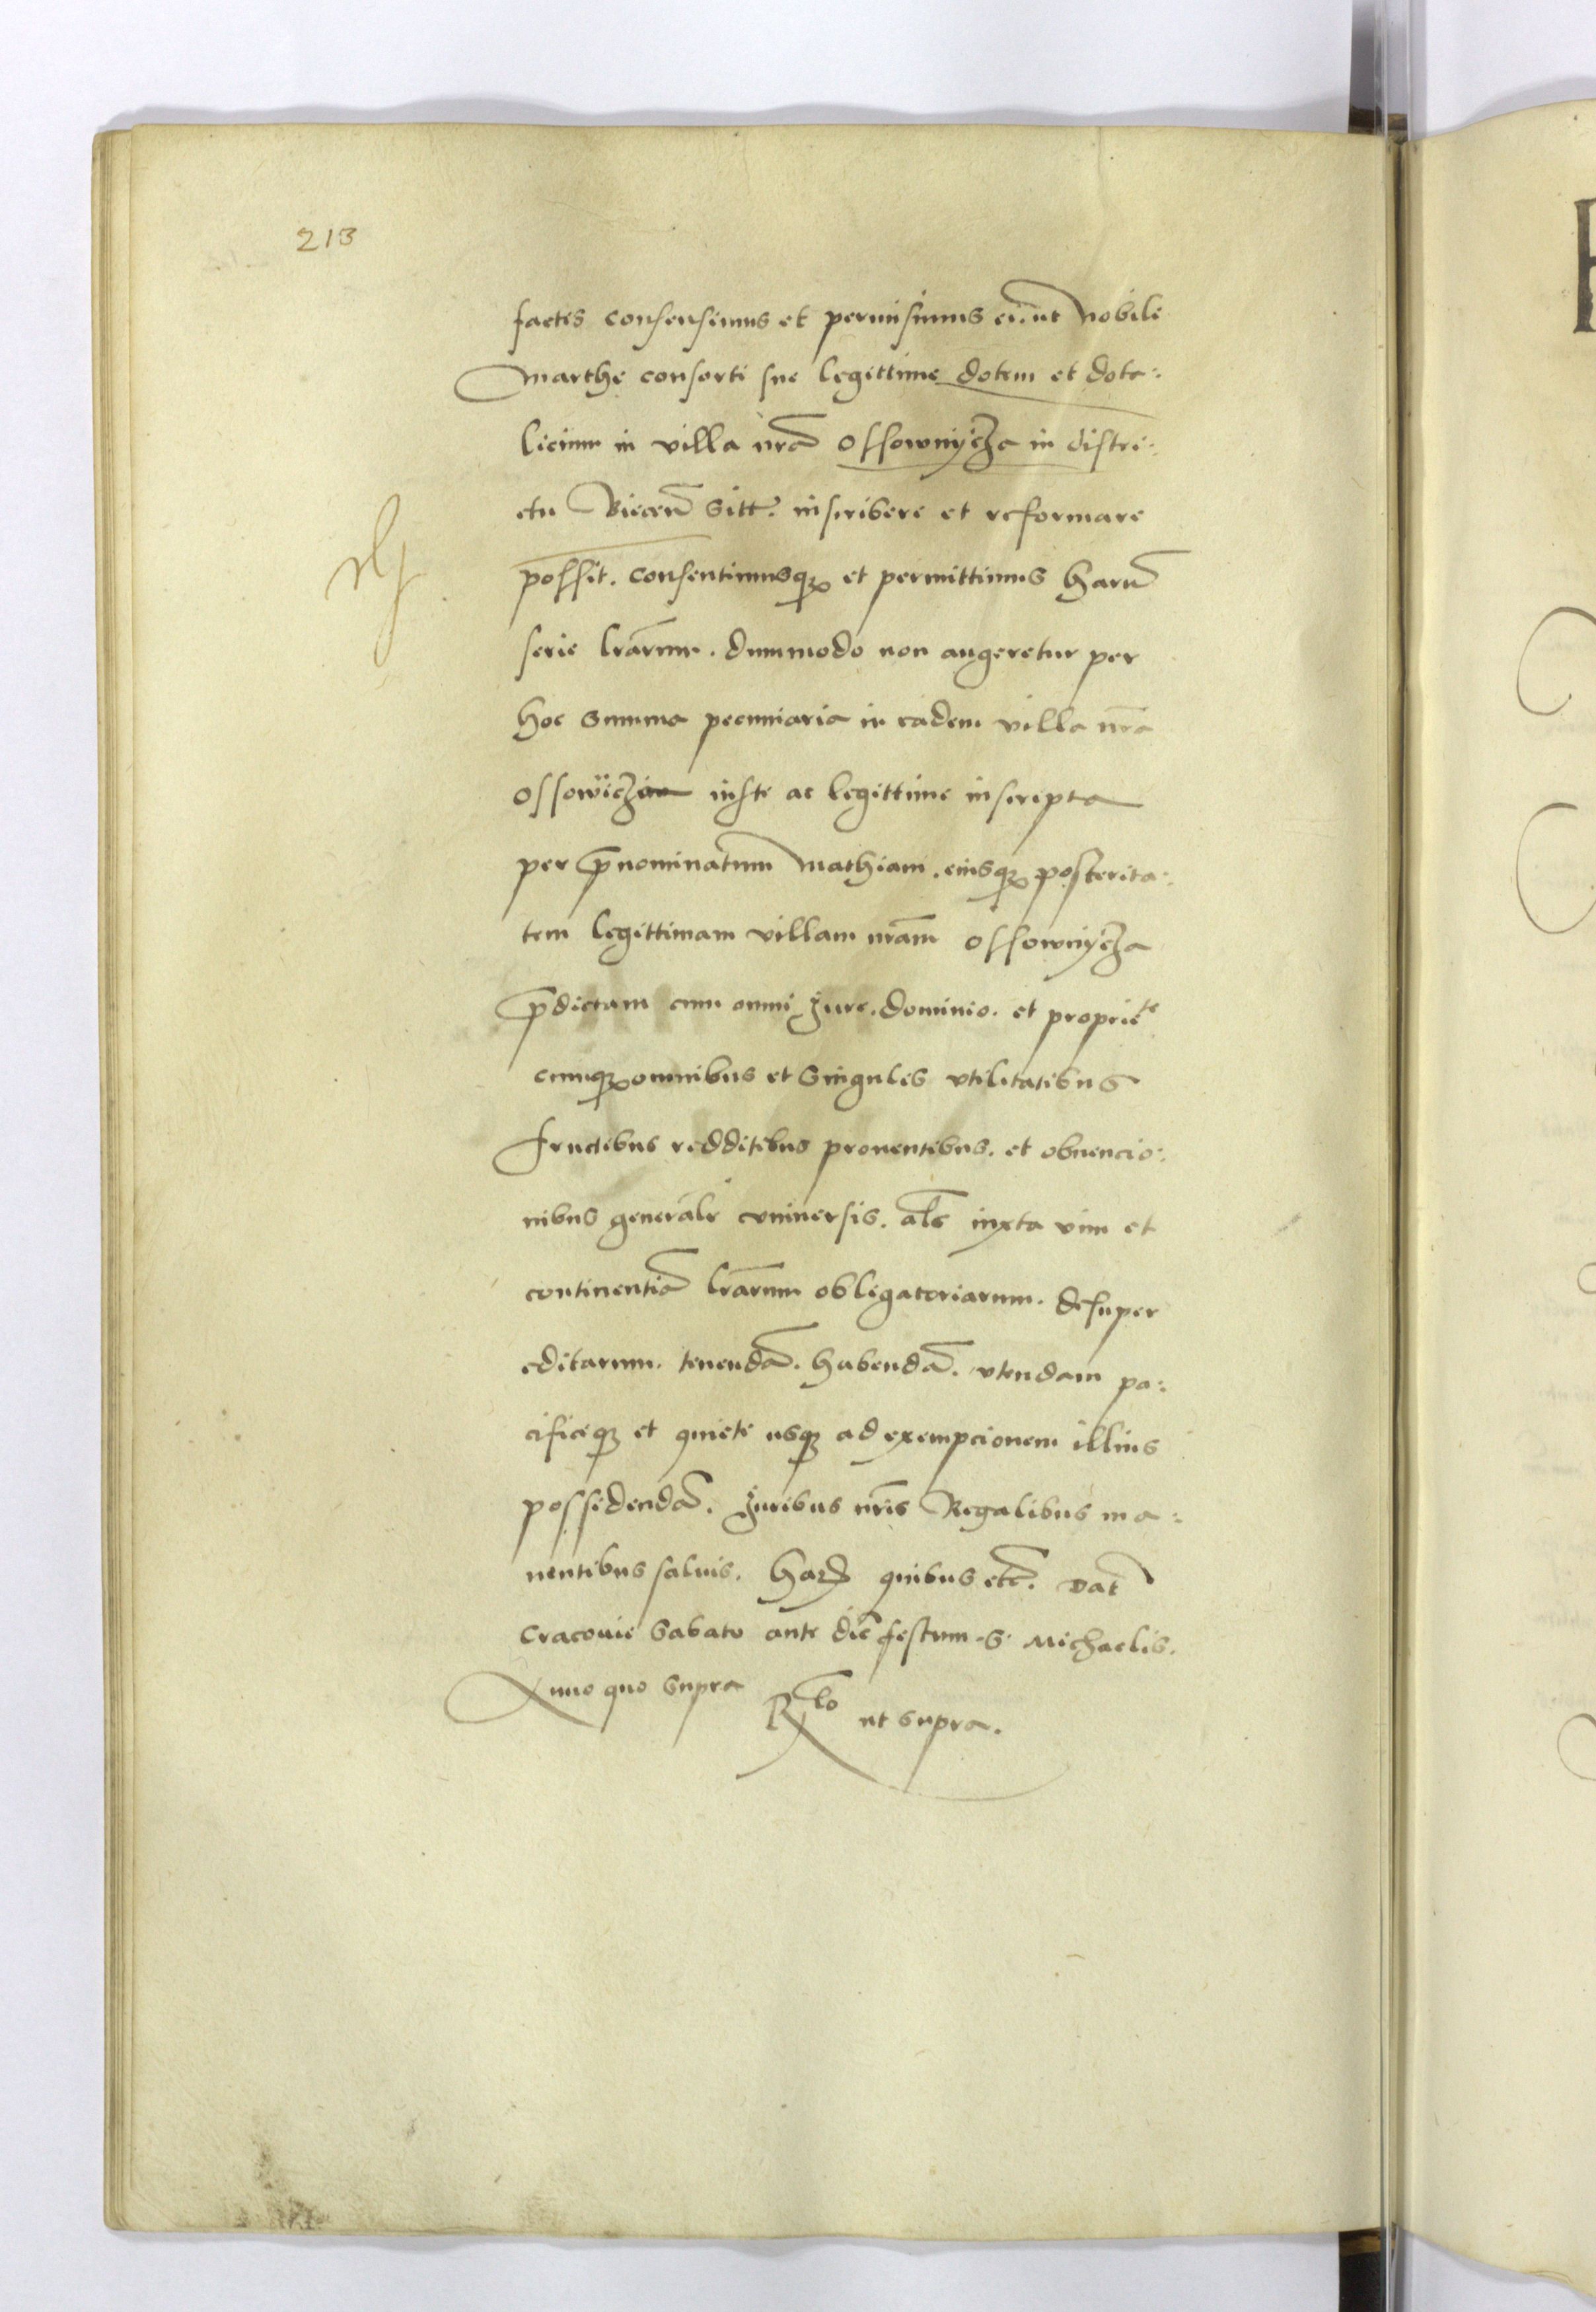 213
factis consensimus et permisimus ei. ut Nobili
Marthe consorti sue legittime dotem et dota:
licium in villa nrã Ossownycza in distri:
ctu Biecen̄ sitt. inscribere et reformare
possit. consentimusq; et permittimus harū
serie lrārum. dummodo non augeretur per
hoc summa pecuniaria in eadem villa nrā
Ossowicza iuste ac legittime inscripta
per p̄nominatum Mathiam. eiusq; posterita:
tem legittimam villam nrām Ossownycza
p̄dictam cum omni Jure. dominio. et proprietᵗᵉ
cumq; omnibus et singulis vtilitatibus
fructibus redditibus prouentibus. et obuencio:
nibus generalr̄ vniuersis. als̄ iuxta vim et
continentiā lrārum obligatoriarum. desuper
editarum. tenendā. habendā. vtendam pa:
cificeq; et quiete usq; ad exempcionem illius
possidendā. Juribus nrīs Regalibus ma:
nentibus saluis. Harꝝ quibus etc̄. Dat̄
Cracouie Sabato ante diē festum .S. Michaelis.
Anno quo supra
Rᵉˡᵒ ut supra.